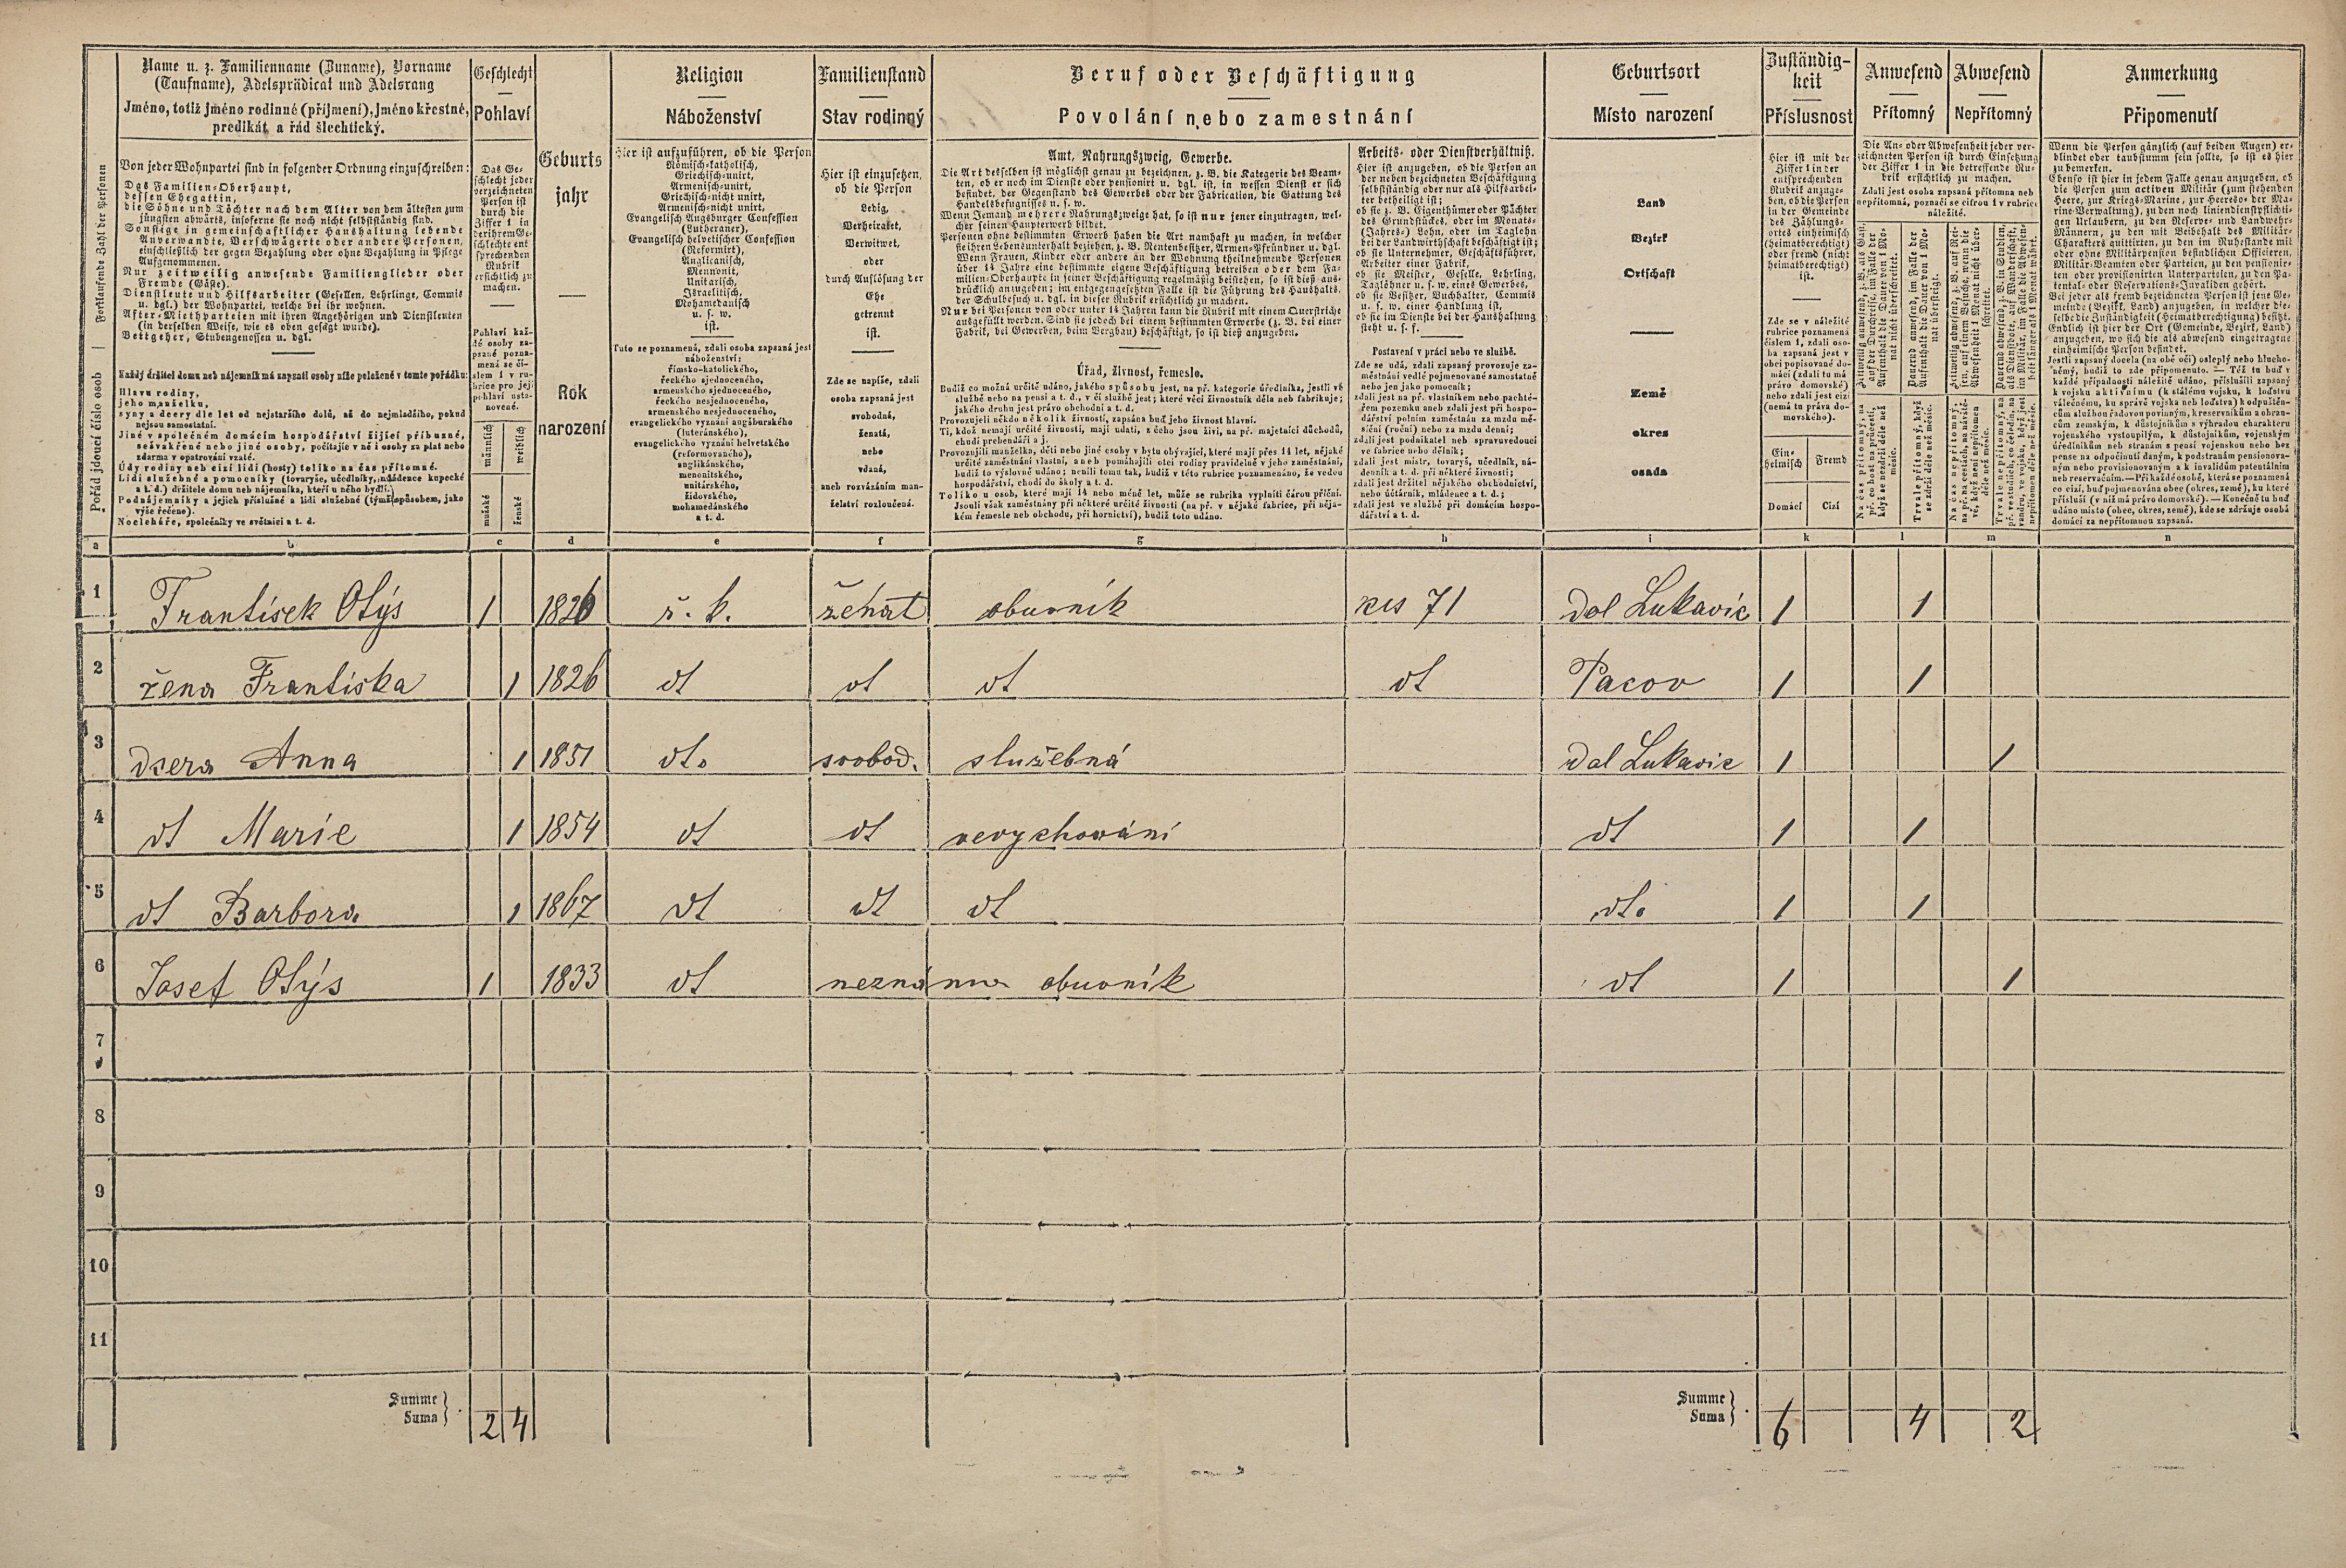 Name u. z. Familienname (Zuname), Vorname
(Taufname), Adelsprädicat und Adelsrang
Jméno, totiž jméno rodinné (příjmení), jméno křestné,
predikát a řád šlechtický.
Geschlecht
Pohlaví
Geburts
jahr
Rok
narození
Religion
Náboženství
Familienstand
Stav rodinný
Beruf oder Beschäftigung
Povolání nebo zamestnání
Geburtsort
Místo narození
Zuständig-
keit
Příslusnost
Anwesend
Přítomný
Abwesend
Nepřítomný
Anmerkung
Připomenutí
Fortlaufende Zahl der Personen
Pořád jdoucí číslo osob
Von jeder Wohnpartei sind in folgender Ordnung einzuschreiben:
Das Familien-Oberhaupt,
dessen Ehegattin,
die Söhne und Töchter nach dem Alter von dem ältesten zum
jüngsten abwärts, insoferne sie noch nicht selbstständig sind.
Sonstige in gemeinschaftlicher Haushaltung lebende
Anverwandte, Verschwägerte oder andere Personen,
einschließlich der gegen Bezahlung oder ohne Bezahlung in Pflege
Aufgenommenen.
Nur zeitweilig anwesende Familienglieder oder
Fremde (Gäste).
Dienstleute und Hilfsarbeiter (Gesellen, Lehrlinge, Commis
u. dgl.) der Wohnpartei, welche bei ihr wohnen.
After-Miethparteien mit ihren Angehörigen und Dienstleuten
(in derselben Weise, wie es oben gesagt wurde).
Bettgeher, Stubengenossen u. dgl.
Každý držitel domu neb nájemník má zapsati osoby níže položené v tomto pořádku:
Hlavu rodiny,
jeho manželku,
syny a dcery dle let od nejstaršího dolů, až do nejmladšího, pokud
nejsou samostatni.
Jiné v společném domácím hospodářství žijící příbuzné,
sešvakřené nebo jiné osoby, počítajíc v ně i osoby za plat nebo
zdarma v opatrování vzaté.
Údy rodiny neb cizí lidi (hosty) toliko na čas přítomné.
Lidi služebné a pomocníky (tovaryše, učedlníky, mládence kupecké
a t. d.) držitele domu neb nájemníka, kteří u něho bydlí.
Podnájemníky a jejich příslušné a lidi služebné (týmž způsobem, jako
výše řečeno).
Nocleháře, společníky ve světnici a t. d.
Das Ge-
schlecht jeder
verzeichneten
Person ist
durch die
Ziffer 1 in
der ihrem Ge-
schlechte ent
sprechenden
Rubrik
ersichtlich zu
machen.
Pohlaví kaž-
dé osoby za-
psané pozna-
mená se čí-
slem 1 v ru-
brice pro její
pohlaví usta-
novené.
männlich
weiblich
mužské
ženské
Hier ist aufzuführen, ob die Person
Römisch-katholisch,
Griechisch-unirt,
Armenisch-unirt,
Griechisch-nicht unirt,
Armenisch-nicht unirt,
Evangelisch Augsburger Confession
(Lutheraner),
Evangelisch helvetischer Confession
(Reformirt),
Anglicanisch,
Mennonit,
Unitarisch,
Israelitisch,
Mohamedanisch
u. s. w.
ist.
Tuto se poznamená, zdali osoba zapsaná jest
náboženství:
římsko-katolického,
řeckého sjednoceného,
armenského sjednoceného,
řeckého nesjednoceného,
armenského nesjednoceného,
evangelického vyznání augšburského
(luteránského),
evangelického vyznání helvetského
(reformovaného),
anglikánského,
menonitského,
unitárského,
židovského,
mohamedánského
a t. d.
Hier ist einzusetzen,
ob die Person
Ledig,
Verheiratet,
Verwitwet,
oder
durch Auflösung der
Ehe
getrennt
ist.
Zde se napíše, zdali
osoba zapsaná jest
svobodná,
ženatá,
nebo
vdaná,
aneb rozvázáním man-
želství rozloučená.
Amt, Nahrungszweig, Gewerbe.
Die Art desselben ist möglichst genau zu bezeichnen, z. B. die Kategorie des Beam-
ten, ob er noch im Dienste oder pensionirt u. dgl. ist, in wessen Dienst er sich
befindet, der Gegenstand des Gewerbes oder der Fabrication, die Gattung des
Handelsbefugnisses u. s. w.
Wenn Jemand mehrere Nahrungszweige hat, so ist nur jener einzutragen, wel-
cher seinen Haupterwerb bildet.
Personen ohne bestimmten Erwerb haben die Art namhaft zu machen, in welcher
sie ihren Lebensunterhalt beziehen, z. B. Rentenbesitzer, Armen-Pfründner u. dgl.
Wenn Frauen, Kinder oder andere an der Wohnung theilnehmende Personen
über 14 Jahre eine bestimmte eigene Beschäftigung betreiben oder dem Fa-
milien-Oberhaupte in seiner Beschäftigung regelmäßig beistehen, so ist dieß aus-
drücklich anzugeben; im entgegengesetzten Falle ist die Führung des Haushalts,
der Schulbesuch u. dgl. in dieser Rubrik ersichtlich zu machen.
Nur bei Personen von oder unter 14 Jahren kann die Rubrik mit einem Querstriche
ausgefüllt werden. Sind sie jedoch bei einem bestimmten Erwerbe (z. B. bei einer
Fabrik, bei Gewerben, beim Bergbau) beschäftigt, so ist dieß anzugeben.
Úřad, živnost, řemeslo.
Budiž co možná určitě udáno, jakého způsobu jest, na př. kategorie úředlníka, jestli ve
službě nebo na pensi a t. d., v čí službě jest; které věci živnostník dělá neb fabrikuje;
jakého druhu jest právo obchodní a t. d.
Provozujeli někdo několik živností, zapsána buď jeho živnost hlavní.
Ti, kdož nemají určité živnosti, mají udati, z čeho jsou živi, na př. majetníci důchodů,
chudí prebendáři a j.
Provozujíli manželka, děti nebo jiné osoby v bytu obývající, které mají přes 14 let, nějaké
určité zaměstnání vlastní, aneb pomáhajíli otci rodiny pravidelně v jeho zaměstnání,
budiž to výslovně udáno; neníli tomu tak, budiž v této rubrice poznamenáno, že vedou
hospodářství, chodí do školy a t. d.
Toliko u osob, které mají 14 nebo méně let, může se rubrika vyplniti čárou příční.
Jsouli však zaměstnány při některé určité živnosti (na př. v nějaké fabrice, při něja-
kém řemesle neb obchodu, při hornictví), budiž toto udáno.
Arbeits- oder Dienstverhältniß.
Hier ist anzugeben, ob die Person an
der neben bezeichneten Beschäftigung
selbstständig oder nur als Hilfsarbei-
ter betheiligt ist;
ob sie z. B. Eigenthümer oder Pächter
des Grundstückes, oder im Monats-
(Jahres-) Lohn, oder im Taglohn
bei der Landwirthschaft beschäftigt ist;
ob sie Unternehmer, Geschäftsführer,
Arbeiter einer Fabrik,
ob sie Meister, Geselle, Lehrling,
Taglöhner u. s. w. eines Gewerbes,
ob sie Besitzer, Buchhalter, Commis
u. s. w. einer Handlung ist,
ob sie im Dienste bei der Haushaltung
steht u. s. f.
Postavení v práci nebo ve službě.
Zde se udá, zdali zapsaný provozuje za-
městnání vedlé pojmenované samostatně
nebo jen jako pomocník;
zdali jest na př. vlastníkem nebo pachté-
řem pozemku aneb zdali jest při hospo-
dářství polním zaměstnán za mzdu mě-
síční (roční) nebo za mzdu denní;
zdali jest podnikatel neb spravovedoucí
ve fabrice nebo dělník;
zdali jest mistr, tovaryš, učedlník, ná-
denník a t. d. při některé živnosti;
zdali jest držitel nějakého obchodnictví,
nebo účtárník, mládenec a t. d.;
zdali jest ve službě při domácím hospo-
dářství a t. d.
Land
Bezirk
Ortschaft
Země
okres
osada
Hier ist mit der
Ziffer 1 in der
entsprechenden
Rubrik anzuge-
ben, ob die Person
in der Gemeinde
des Zählungs-
ortes einheimisch
(heimatberechtigt)
oder fremd (nicht
heimatberechtigt)
ist.
Zde se v náležité
rubrice poznamená
číslem 1, zdali oso-
ba zapsaná jest v
obci popisované do-
mácí (zdali tu má
právo domovské)
nebo zdali jest cizí
(nemá tu práva do-
movského).
Ein-
heimisch
Fremd
Domácí
Cizí
Die An- oder Abwesenheit jeder ver-
zeichneten Person ist durch Einsetzung
der Ziffer 1 in die betreffende Ru-
brik ersichtlich zu machen.
Zdali jest osoba zapsaná přítomna neb
nepřítomná, poznačí se cifrou 1 v rubrice
náležité.
Zeitweilig anwesend, z. B. als Gast,
auf der Durchreise, im Falle der
Aufenthalt die Dauer von 1 Mo-
nat nicht überschreitet.
Dauernd anwesend, im Falle der
Aufenthalt die Dauer von 1 Mo-
nat übersteigt.
Zeitweilig abwesend, z. B. auf Rei-
sen, auf einem Besuche, wenn die
Abwesenheit 1 Monat nicht über-
schreitet.
Dauernd abwesend, z. B. in Studien,
als Dienstbote, auf Wanderschaft,
im Militär, im Falle die Abwesen-
heit länger als 1 Monat währt.
Na čas přítomný, na
př. co host na průcestí,
když se nezdrží déle než
měsíc.
Trvale přítomný, když
se zdrží déle než měsíc.
Na čas nepřítomný,
na př. na cestách, na návště-
vě, když není nepřítomen
déle než měsíc.
Trvale nepřítomný, na
př. ve studiích, co čeledín, na
vandru, ve vojsku, když jest
nepřítomen déle než měsíc.
Wenn die Person gänzlich (auf beiden Augen) er-
blindet oder taubstumm sein sollte, so ist es hier
zu bemerken.
Ebenso ist hier in jedem Falle genau anzugeben, ob
die Person zum activen Militär (zum stehenden
Heere, zur Kriegs-Marine, zur Heeres- oder Ma-
rine-Verwaltung), zu den noch liniendienstpflichti-
gen Urlaubern, zu den Reserve- und Landwehr-
Männern, zu den mit Beibehalt des Militär-
Charakters quittirten, zu den im Ruhestande mit
oder ohne Militärpension befindlichen Officieren,
Militär-Beamten oder Parteien, zu den pensionir-
ten oder provisionirten Unterparteien, zu den Pa-
tental- oder Reservations-Invaliden gehört.
Bei jeder als fremd bezeichneten Person ist jene Ge-
meinde (Bezirk, Land) anzugeben, in welcher die-
selbe die Zuständigkeit (Heimatberechtigung) besitzt.
Endlich ist hier der Ort (Gemeinde, Bezirk, Land)
anzugeben, wo sich die als abwesend eingetragene
einheimische Person befindet.
Jestli zapsaný docela (na obě oči) osleplý nebo hlucho-
němý, budiž to zde připomenuto. — Též tu buď v
každé případnosti náležitě udáno, přísluší zapsaný
k vojsku aktivnímu (k stálému vojsku, k loďstvu
válečnému, ku správě vojska neb loďstva) k odpuštěn-
cům službou řadovou povinným, k reservníkům a obran-
cům zemským, k důstojníkům s výhradou charakteru
vojenského vystoupilým, k důstojníkům, vojenským
úředlníkům neb stranám s pensí vojenskou nebo bez
pense na odpočinutí daným, k podstranám pensionova-
ným nebo provisionovaným a k invalidům patentálním
neb reservačním. — Při každé osobě, která se poznamená
co cizí, buď pojmenována obec (okres, země), ku které
přísluší (v níž má právo domovské). — Konečně tu buď
udáno místo (obec, okres, země), kde se zdržuje osoba
domácí za nepřítomnou zapsaná.
a b c d e f g h i k l m n
1 František Otýs 1 1826 ř. k. ženat obuvník 71 Dol Lukavic 1 1
2 žena Františka 1 1826 dt dt dt dt Pacov 1 1
3 dcera Anna 1 1851 dto svobod. služebná Dol Lukavic 1 1
4 dt Marie 1 1854 dt dt vevychování dt 1 1
5 dt Barbora 1 1867 dt dt dt dto 1 1
6 Josef Otýs 1 1833 dt neznámo obuvník dt 1 1
7
8
9
10
11
Summe
Suma 2 4
Summe
Suma 6 4 2